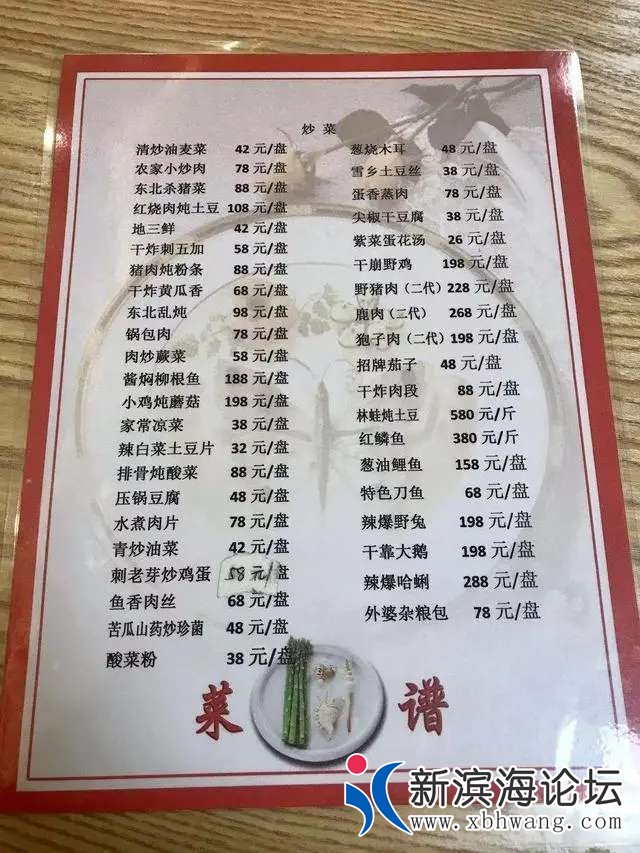 炒菜
清炒油麦菜 42 元/盘
农家小炒肉 78 元/盘
东北杀猪菜 88 元/盘
红烧肉炖土豆 108 元/盘
地三鲜 42 元/盘
干炸刺五加 58 元/盘
猪肉炖粉条 88 元/盘
干炸黄瓜香 68 元/盘
东北乱炖 98 元/盘
锅包肉 78 元/盘
肉炒蕨菜 58 元/盘
酱焖柳根鱼 188 元/盘
小鸡炖蘑菇 198 元/盘
家常凉菜 38 元/盘
辣白菜土豆片 32 元/盘
排骨炖酸菜 88 元/盘
压锅豆腐 48 元/盘
水煮肉片 78 元/盘
青炒油菜 42 元/盘
刺老芽炒鸡蛋 58 元/盘
鱼香肉丝 68 元/盘
苦瓜山药炒珍菌 48 元/盘
酸菜粉 38 元/盘
葱烧木耳 48 元/盘
雪乡土豆丝 38 元/盘
蛋香蒸肉 78 元/盘
尖椒干豆腐 38 元/盘
紫菜蛋花汤 26 元/盘
干崩野鸡 198 元/盘
野猪肉（二代）228 元/盘
鹿肉（三代） 268 元/盘
狍子肉（二代）198 元/盘
招牌茄子 48 元/盘
干炸肉段 88 元/盘
林蛙炖土豆 580 元/斤
红鳞鱼 380 元/斤
葱油鲤鱼 158 元/盘
特色刀鱼 68 元/盘
辣爆野兔 198 元/盘
干靠大鹅 198 元/盘
辣爆哈蜊 288 元/盘
外婆杂粮包 78 元/盘
菜谱
新滨海论坛
www.xbhwang.com